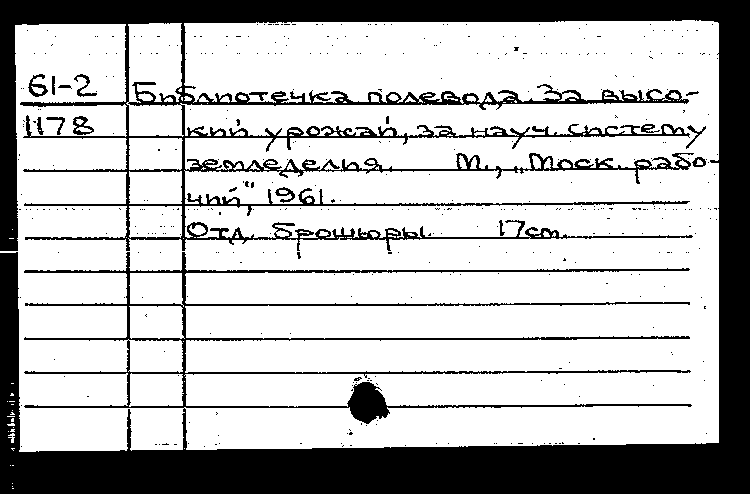 61-2 Библиотечка полевода. За высо-
1178 кий урожай, за науч. систему
земледелия. М., „Моск. рабо-
чий", 1961.
Отд. брошюры. 17см.